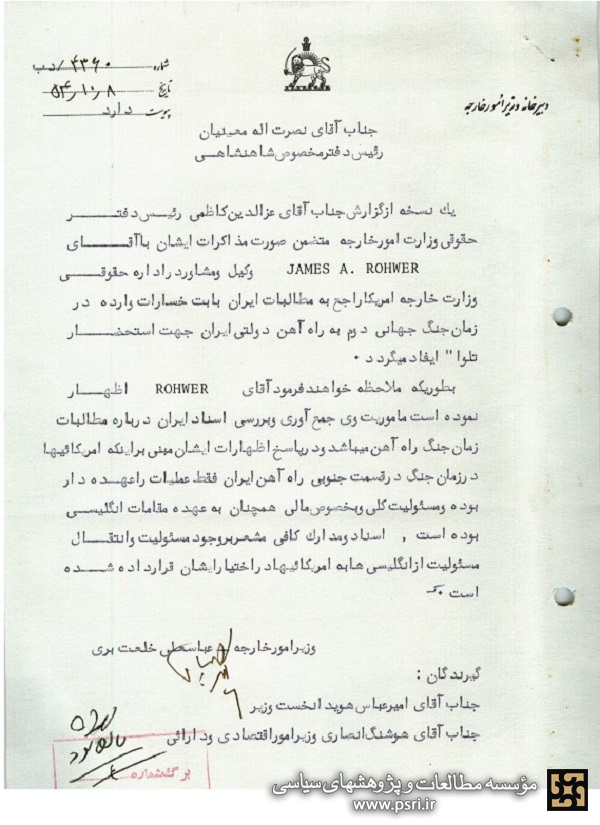 شماره ۴۳۶۰/د ب
تاریخ ۵۴/۱۰/۸
پیوست دارد
دبیرخانه وزیر امور خارجه
جناب آقای نصرت اله معینیان
رئیس دفتر مخصوص شاهنشاهی
یك نسخه از گزارش جناب آقای عزالدین کاظمی رئیس دفتر
حقوقی وزارت امور خارجه متضمن صورت مذاکرات ایشان با آقای
JAMES A. ROHWER وکیل ومشاور در اداره حقوقی
وزارت خارجه امریکا راجع به مطالبات ایران بابت خسارات وارده در
زمان جنگ جهانی دوم به راه آهن دولتی ایران جهت استحضار
تلوا" ایفاد میگردد ۰
بطوریکه ملاحظه خواهند فرمود آقای ROHWER اظهار
نموده است ماموریت وی جمع آوری وبررسی اسناد ایران درباره مطالبات
زمان جنگ راه آهن میباشد ودر پاسخ اظهارات ایشان مبنی براینکه امریکائیها
در زمان جنگ در قسمت جنوبی راه آهن ایران فقط عملیات را عهده دار
بوده ومسئولیت کلی وبخصوص مالی همچنان به عهده مقامات انگلیسی
بوده است , اسناد ومدارك کافی مشعر بر وجود مسئولیت وانتقال
مسئولیت از انگلیسی ها به امریکائیها در اختیار ایشان قرار داده شده
است ۰
وزیر امور خارجه عباسعلی خلعت بری
گیرندگان :
جناب آقای امیرعباس هویدا نخست وزیر
جناب آقای هوشنگ انصاری وزیر امور اقتصادی ودارائی
برگشت شماره
مؤسسه مطالعات و پژوهشهای سیاسی
www.psri.ir